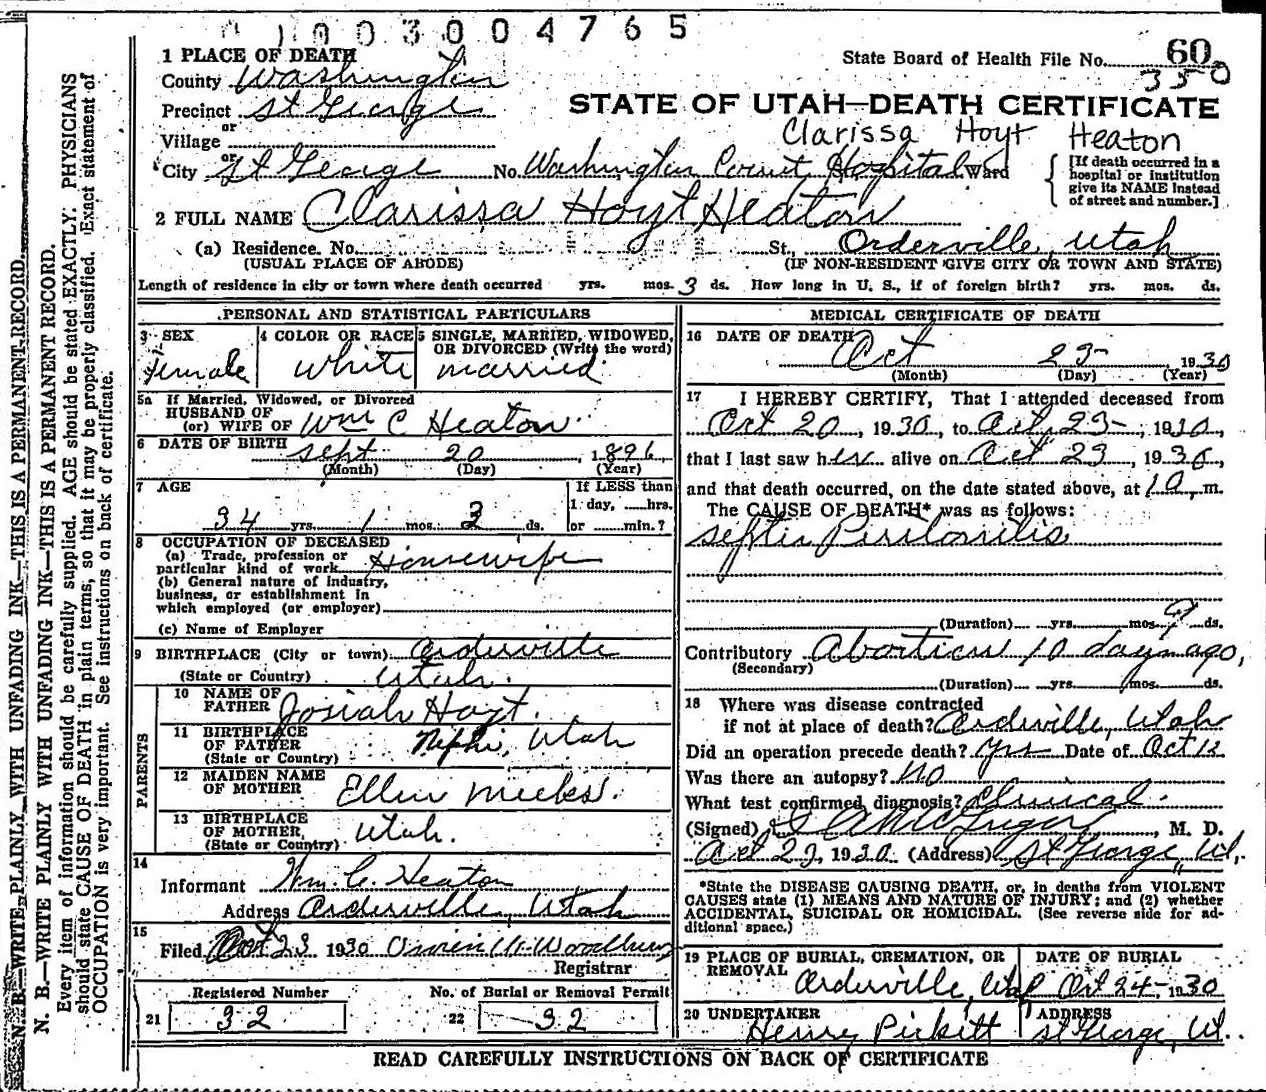 1003004765
1 PLACE OF DEATH
State Board of Health File No. 60
350
County Washington
Precinct St George
STATE OF UTAH—DEATH CERTIFICATE
or
Village
Clarissa Hoyt Heaton
or
City St George No. Washington Count Hospital Ward
[If death occurred in a
hospital or institution
give its NAME instead
of street and number.]
2 FULL NAME Clarissa Hoyt Heaton
(a) Residence. No. St., Orderville, Utah
(USUAL PLACE OF ABODE) (IF NON-RESIDENT GIVE CITY OR TOWN AND STATE)
Length of residence in city or town where death occurred yrs. mos. 3 ds. How long in U. S., if of foreign birth? yrs. mos. ds.
PERSONAL AND STATISTICAL PARTICULARS
3 SEX
Female
4 COLOR OR RACE
White
5 SINGLE, MARRIED, WIDOWED,
OR DIVORCED (Write the word)
married
5a If Married, Widowed, or Divorced
HUSBAND OF
(or) WIFE OF Wm C Heaton
6 DATE OF BIRTH
Sept 20, 1896
(Month) (Day) (Year)
7 AGE
34 yrs. 1 mos. 3 ds.
If LESS than
1 day, hrs.
or min.?
8 OCCUPATION OF DECEASED
(a) Trade, profession or
particular kind of work Housewife
(b) General nature of industry,
business, or establishment in
which employed (or employer)
(c) Name of Employer
9 BIRTHPLACE (City or town) Orderville
(State or Country) Utah.
PARENTS
10 NAME OF
FATHER Josiah Hoyt.
11 BIRTHPLACE
OF FATHER Nephi, Utah
(State or Country)
12 MAIDEN NAME
OF MOTHER Ellen Meeks.
13 BIRTHPLACE
OF MOTHER, Utah.
(State or Country)
14
Informant Wm. C. Heaton
Address Orderville, Utah
15
Filed Oct 23 1930 Woodbury
Registrar
Registered Number
21 32
No. of Burial or Removal Permit
22 32
MEDICAL CERTIFICATE OF DEATH
16 DATE OF DEATH
Oct 23 1930
(Month) (Day) (Year)
17 I HEREBY CERTIFY, That I attended deceased from
Oct 20, 1930, to Oct 23, 1930,
that I last saw her alive on Oct 23, 1930,
and that death occurred, on the date stated above, at m.
The CAUSE OF DEATH* was as follows:
septic Peritonitis
(Duration) yrs. mos. 9 ds.
Contributory Abortion 10 days ago,
(Secondary)
(Duration) yrs. mos. ds.
18 Where was disease contracted
if not at place of death? Orderville, Utah
Did an operation precede death? yes Date of Oct
Was there an autopsy? No
What test confirmed diagnosis? Clinical.
(Signed) McGregor, M. D.
Oct 23, 1930 (Address) St George, Ut.
*State the DISEASE CAUSING DEATH, or, in deaths from VIOLENT
CAUSES state (1) MEANS AND NATURE OF INJURY; and (2) whether
ACCIDENTAL, SUICIDAL OR HOMICIDAL. (See reverse side for ad-
ditional space.)
19 PLACE OF BURIAL, CREMATION, OR
REMOVAL Orderville, Utah
DATE OF BURIAL
Oct 24, 1930
20 UNDERTAKER
Henry Pickett
ADDRESS
St George, Ut.
READ CAREFULLY INSTRUCTIONS ON BACK OF CERTIFICATE
N. B.—WRITE PLAINLY WITH UNFADING INK—THIS IS A PERMANENT RECORD.
N. B.—WRITE PLAINLY WITH UNFADING INK—THIS IS A PERMANENT RECORD.
Every item of information should be carefully supplied. AGE should be stated EXACTLY. PHYSICIANS
should state CAUSE OF DEATH in plain terms, so that it may be properly classified. Exact statement of
OCCUPATION is very important. See instructions on back of certificate.